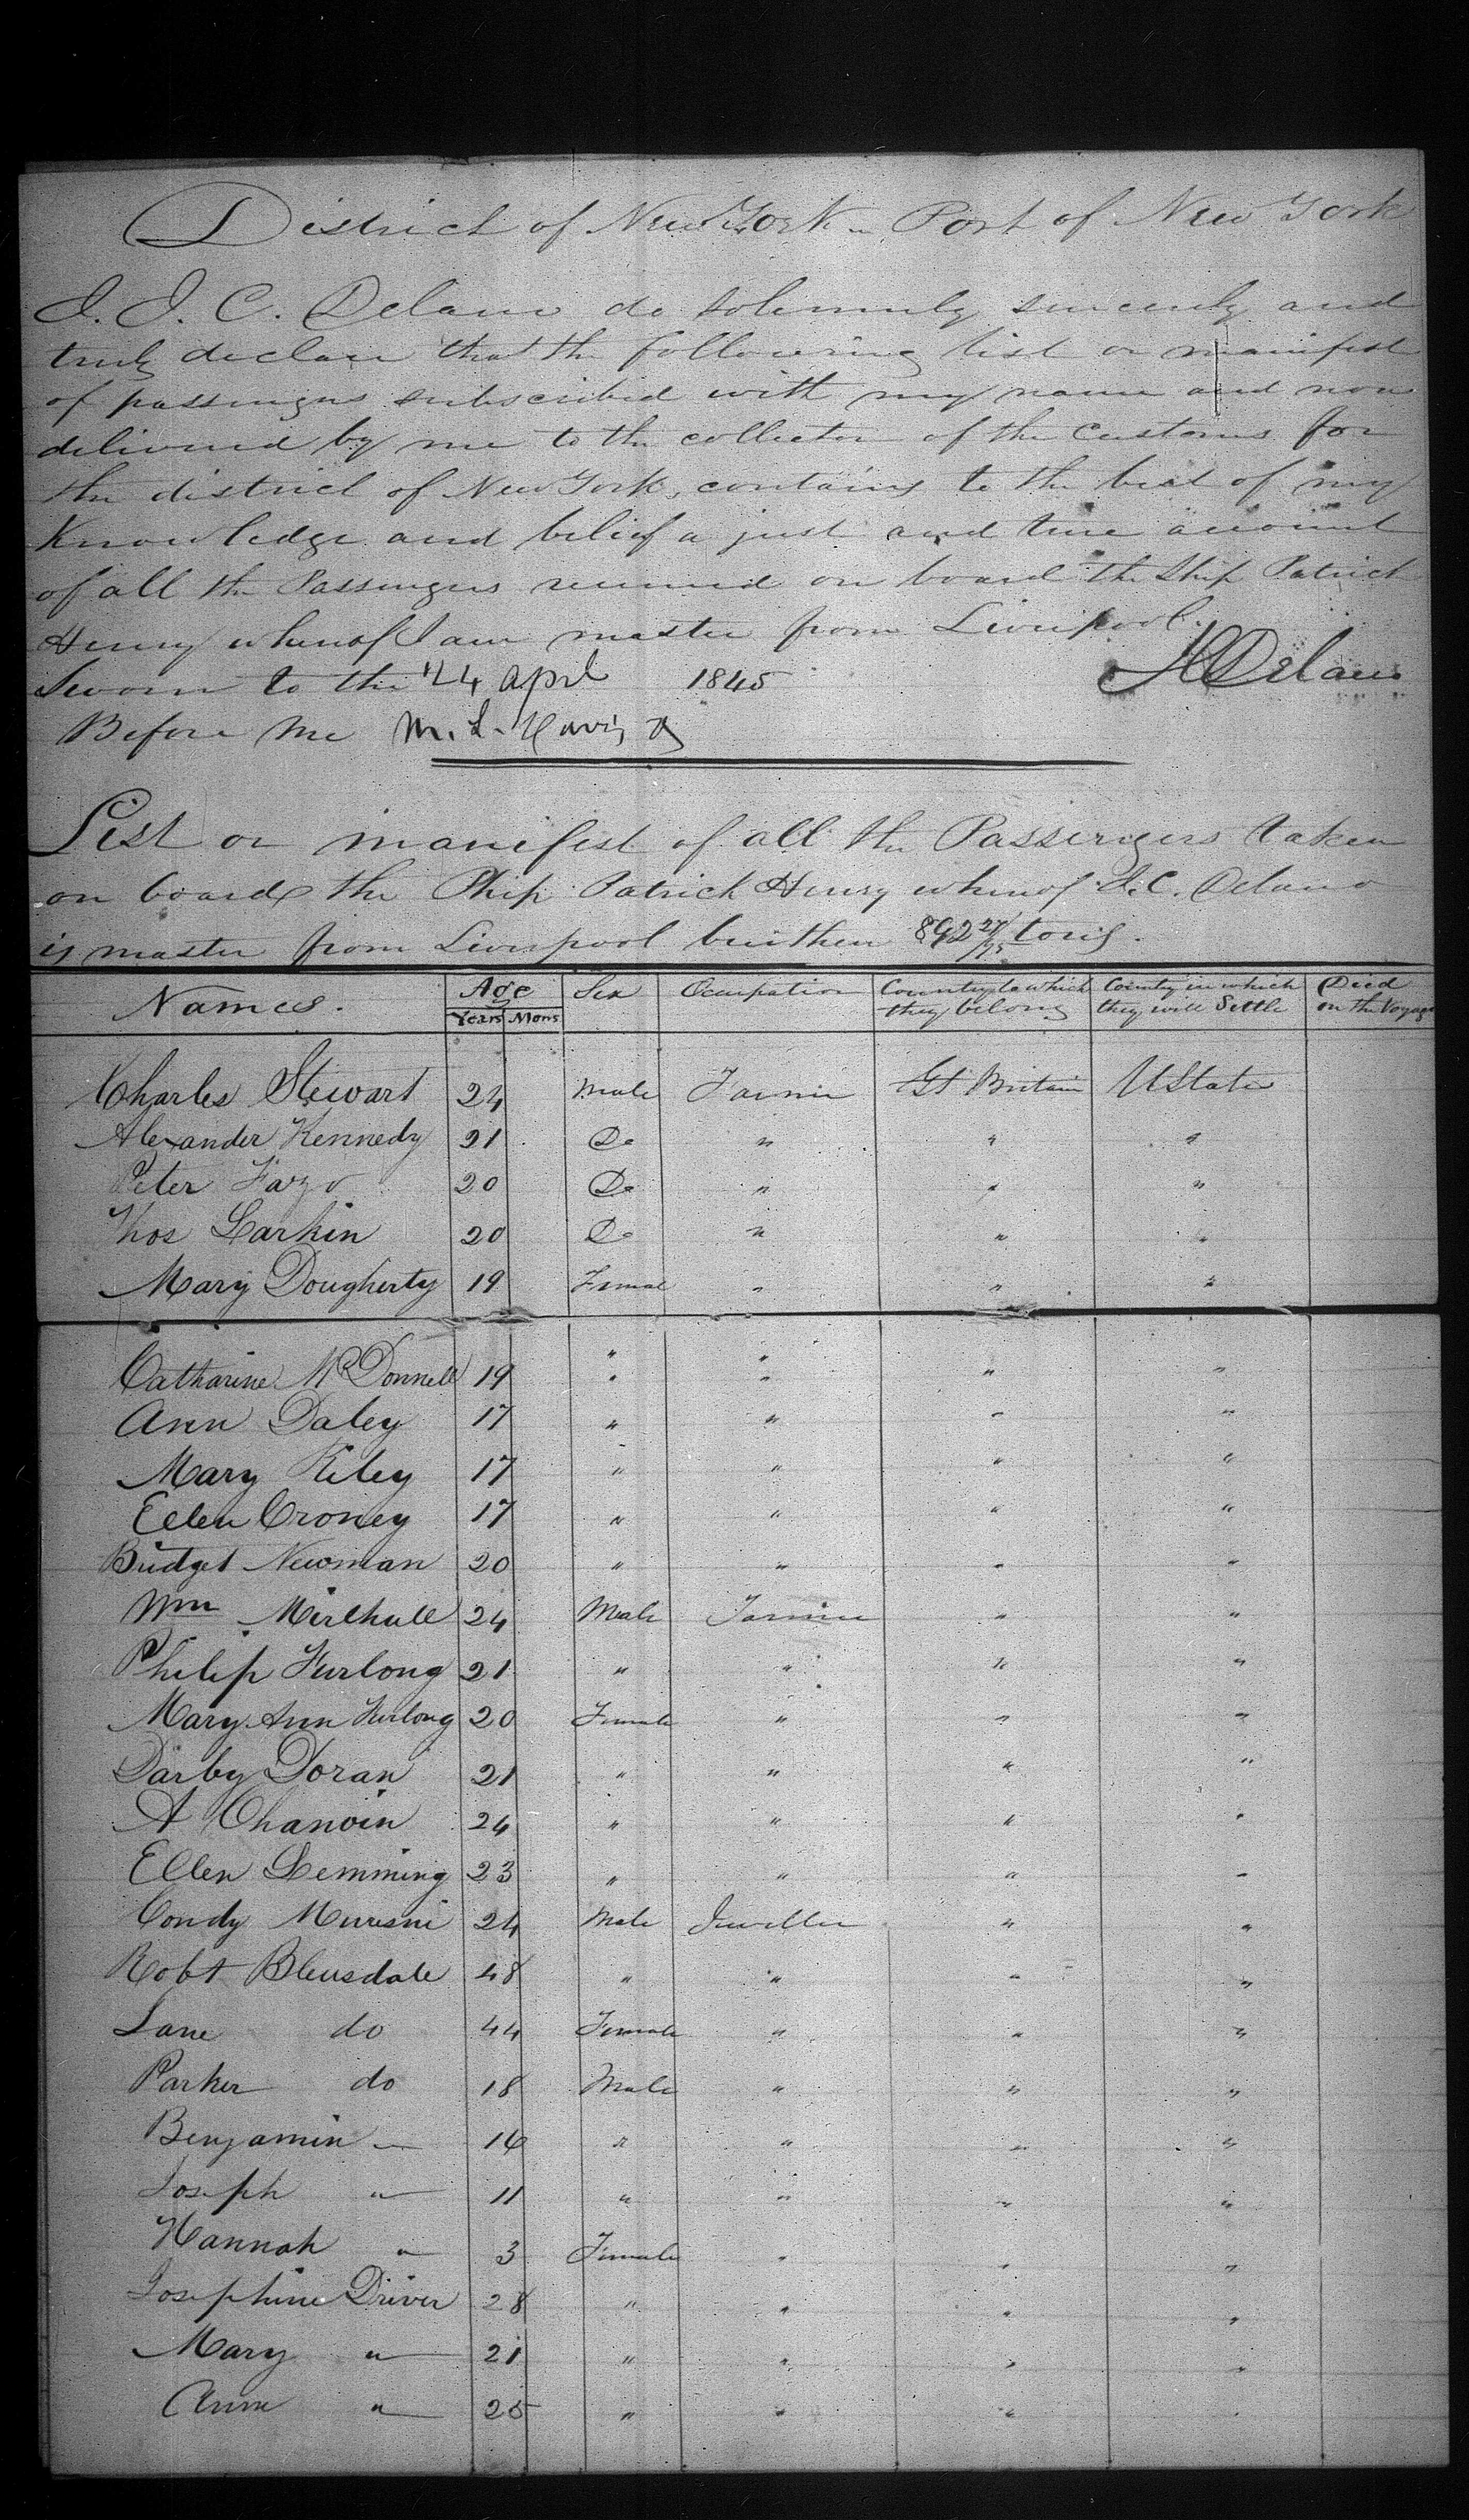 District of New York - Port of New York
I. J. C. Delano do solemnly sincerely and
truly declare that the following list or manifest
of passengers subscribed with my name and now
delivered by me to the collector of the Customs for
the district of New York, contains to the best of my
Knowledge and belief a just and true account
of all the Passengers received on board the Ship Patrick
Henry whereof I am master from Liverpool.
Sworn to this 24 April 1845 JCDelano
Before me M. L. Davis
List or manifest of all the Passengers taken
on board the Ship Patrick Henry whereof J. C. Delano
is master from Liverpool burthen 892 tons.
Names. Age Sex Occupation Country to which they belong Country in which they will Settle Died on the Voyage
Years Mons
Charles Stewart 24 Male Farmer Gt Britain UStates
Alexander Kennedy 21 Do " " "
Peter 20 Do " " "
Thos Larkin 20 Do " " "
Mary Dougherty 19 Female " " "
Catharine McDonnell 19 " " " "
Ann Daley 17 " " " "
Mary Riley 17 " " " "
Ellen Croney 17 " " " "
Bridget Newman 20 " " " "
Wm Mirlhall 24 Male Farmer " "
Philip Furlong 21 " " " "
Mary Ann Furlong 20 Female " " "
Darby Doran 21 " " " "
A Chanoin 24 " " " "
Ellen Lemming 23 " " " "
Condy 24 Male Jeweller " "
Robt Bleusdale 48 " " " "
Lane do 44 Female " " "
Parker do 18 Male " " "
Benjamin " 16 " " " "
Joseph " 11 " " " "
Hannah " 3 Female " " "
Josephine Driver 28 " " " "
Mary " 21 " " " "
Ann " 25 " " " "